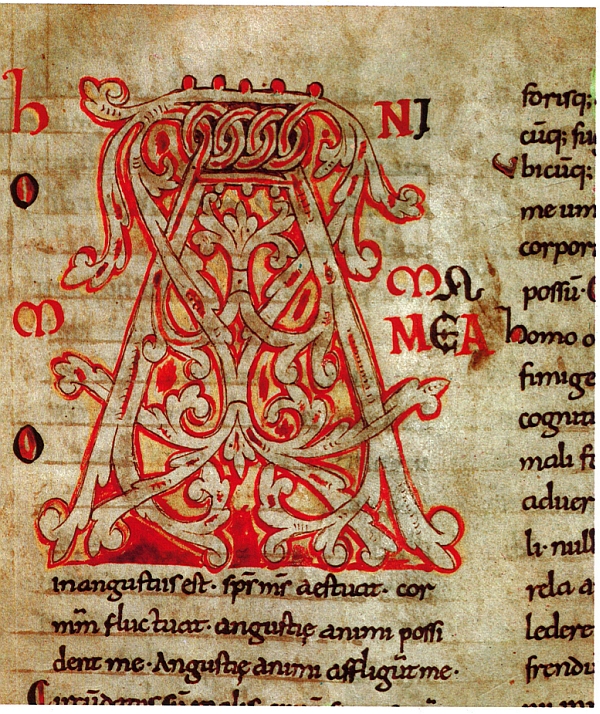 h
O
m
O
A NI
MA
MEA
in angustiis est· sps̄ ms̄ aestuat· cor
mm̄ fluctuat· angustię animi possi
dent me· Angustię animi affligūt me·
Circūdatus sū malis
forisq;
cūq; fu
bicūq;
me um
corpor
possū·
homo o
fimige
cogniti
mali f
aduer
li· null
rela a
ledere
frendu